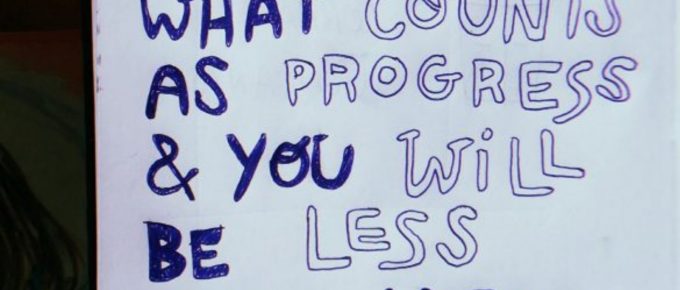 WHAT COUNTS
AS PROGRESS
& YOU WiLL
BE LESS